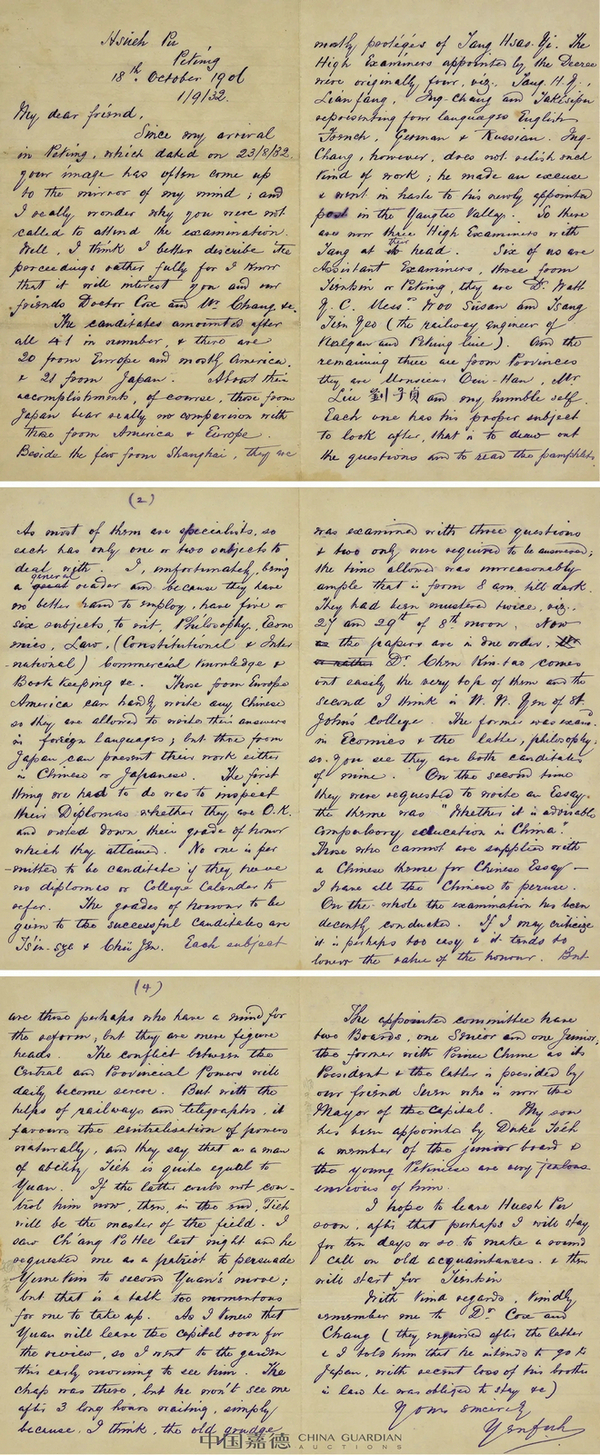 Hsueh Pu
Peking
18th October 1906
1/9/32.
My dear friend,
Since my arrival
in Peking, which dated on 23/8/32
your image has often come up
to the mirror of my mind; and
I really wonder why you were not
called to attend the examination.
Well, I think I better describe the
proceedings rather fully for I know
that it will interest you and our
friends Doctor Cox and Mr Chang &c.
The canditates amounted after
all 41 in number, & there are
20 from Europe and mostly America,
& 21 from Japan. About their
accomplishment, of course, those from
Japan bear really no comparison with
those from America & Europe.
Beside the few from Shanghai, they are
mostly protégés of Tang Hsao Yi. The
High Examiners appointed by the Decree
were originally four, viz. Tang H. Y.,
Lian fang, Ing-Chang and Takesipu
representing four languages English
French, German & Russian. Ing-
Chang, however, does not relish such
kind of work; he made an excuse
& went in haste to his newly appointed
post in the Yangtse Valley. So there
are now three High Examiners with
Tang at their head. Six of us are
Assistant Examiners, three from
Tientsin or Peking, they are Dr. Watt
J. C. Messrs Woo Susan and Tsang
Tien Yeo (the railway engineer of
Kalgan and Peking line). And the
remaining three are from Provinces
they are Monsieurs Ou-Han, Mr
Liu 劉子貞 and my humble self.
Each one has his proper subject
to look after, that is to draw out
the questions and to read the pamphlets.
(2)
As most of them are specialists, so
each has only one or two subjects to
deal with. I, unfortunately, being
a general reader and because they have
no better hand to employ, have five or
six subjects, to wit, Philosophy, Econo
mics, Law, (Constitutional & Inter
-national) Commercial Knowledge &
Book Keeping &c. Those from Europe
America can hardly write any Chinese
so they are allowed to write their answers
in foreign languages; but those from
Japan can present their work either
in Chinese or Japanese. The first
thing we had to do was to inspect
their Diplomas whether they are O.K.
and noted down their grade of honor
which they attained. No one is per
-mitted to be canditate if they have
no diplomas or College Calender to
refer. The grades of honour to be
given to the successful Canditates are
Tsin-sze & Chü Jen. Each subject
was examined with three questions
& two only were required to be answered;
the time allowed was unreasonably
ample that is from 8 am. till dark.
They had been mustered twice, viz.
27 an 29th of 8th moon. Now
the papers are in due order,
Dr. Chen Kin-tao comes
out easily the very top of them and the
second I think is W. W. Yen of St.
John's College. The former was exami.
in Ecomics & the latter, philosophy,
so you see they are both canditates
of mine. On the second time
they were requested to write an Essay,
the theme was "Whether it is advisable
compulsory education in China".
Those who cannot are supplied with
a Chinese theme for Chinese Essay —
I have all the Chinese to peruse.
On the whole the examination has been
decently conducted. If I may criticize
it is perhaps too easy & it tends to
lower the value of the honour. But
(4)
are those perhaps who have a mind for
the reform, but they are mere figure
heads. The conflict between the
Central and Provincial Powers will
daily become severe. But with the
helps of railways and telegraphs, it
favours the centralisation of powers
naturally, and they say that as a man
of ability Tieh is quite equal to
Yuan. If the latter could not con-
trol him now, then, in the end, Tieh
will be the master of the field. I
saw Ch'ang Po Hee last night and he
requested me as a patriot to persuade
to second Yuan's move;
but that is a task too momentous
for me to take up. As I knew that
Yuan will leave the capital soon for
the review, so I went to the garden
this early morning to see him. The
chap was there, but he won't see me
after 3 long hours waiting, simply
because, I think, the old grudge.
The appointed committee have
two Boards, one Senior and one Junior,
the former with Prince Chune as its
President & the latter is presided by
our friend Suen who is now the
Mayor of the Capital. My son
has been appointed by Duke Tseh
a member of the junior board &
the young Pekinese are very jealous
envious of him.
I hope to leave Hsueh Pu
soon, after that perhaps I will stay
for ten days or so to make a round
call on old acquaintances. & then
will start for Tientsin
With kind regards. Kindly
remember me to Dr. Cox and
Chang (they enquired after the latter
& I told him that he intends to go to
Japan, with recent loss of his brother
in law he was obliged to stay &c)
Yours sincerely
Yenfuh
中国嘉德 CHINA GUARDIAN
AUCTIONS